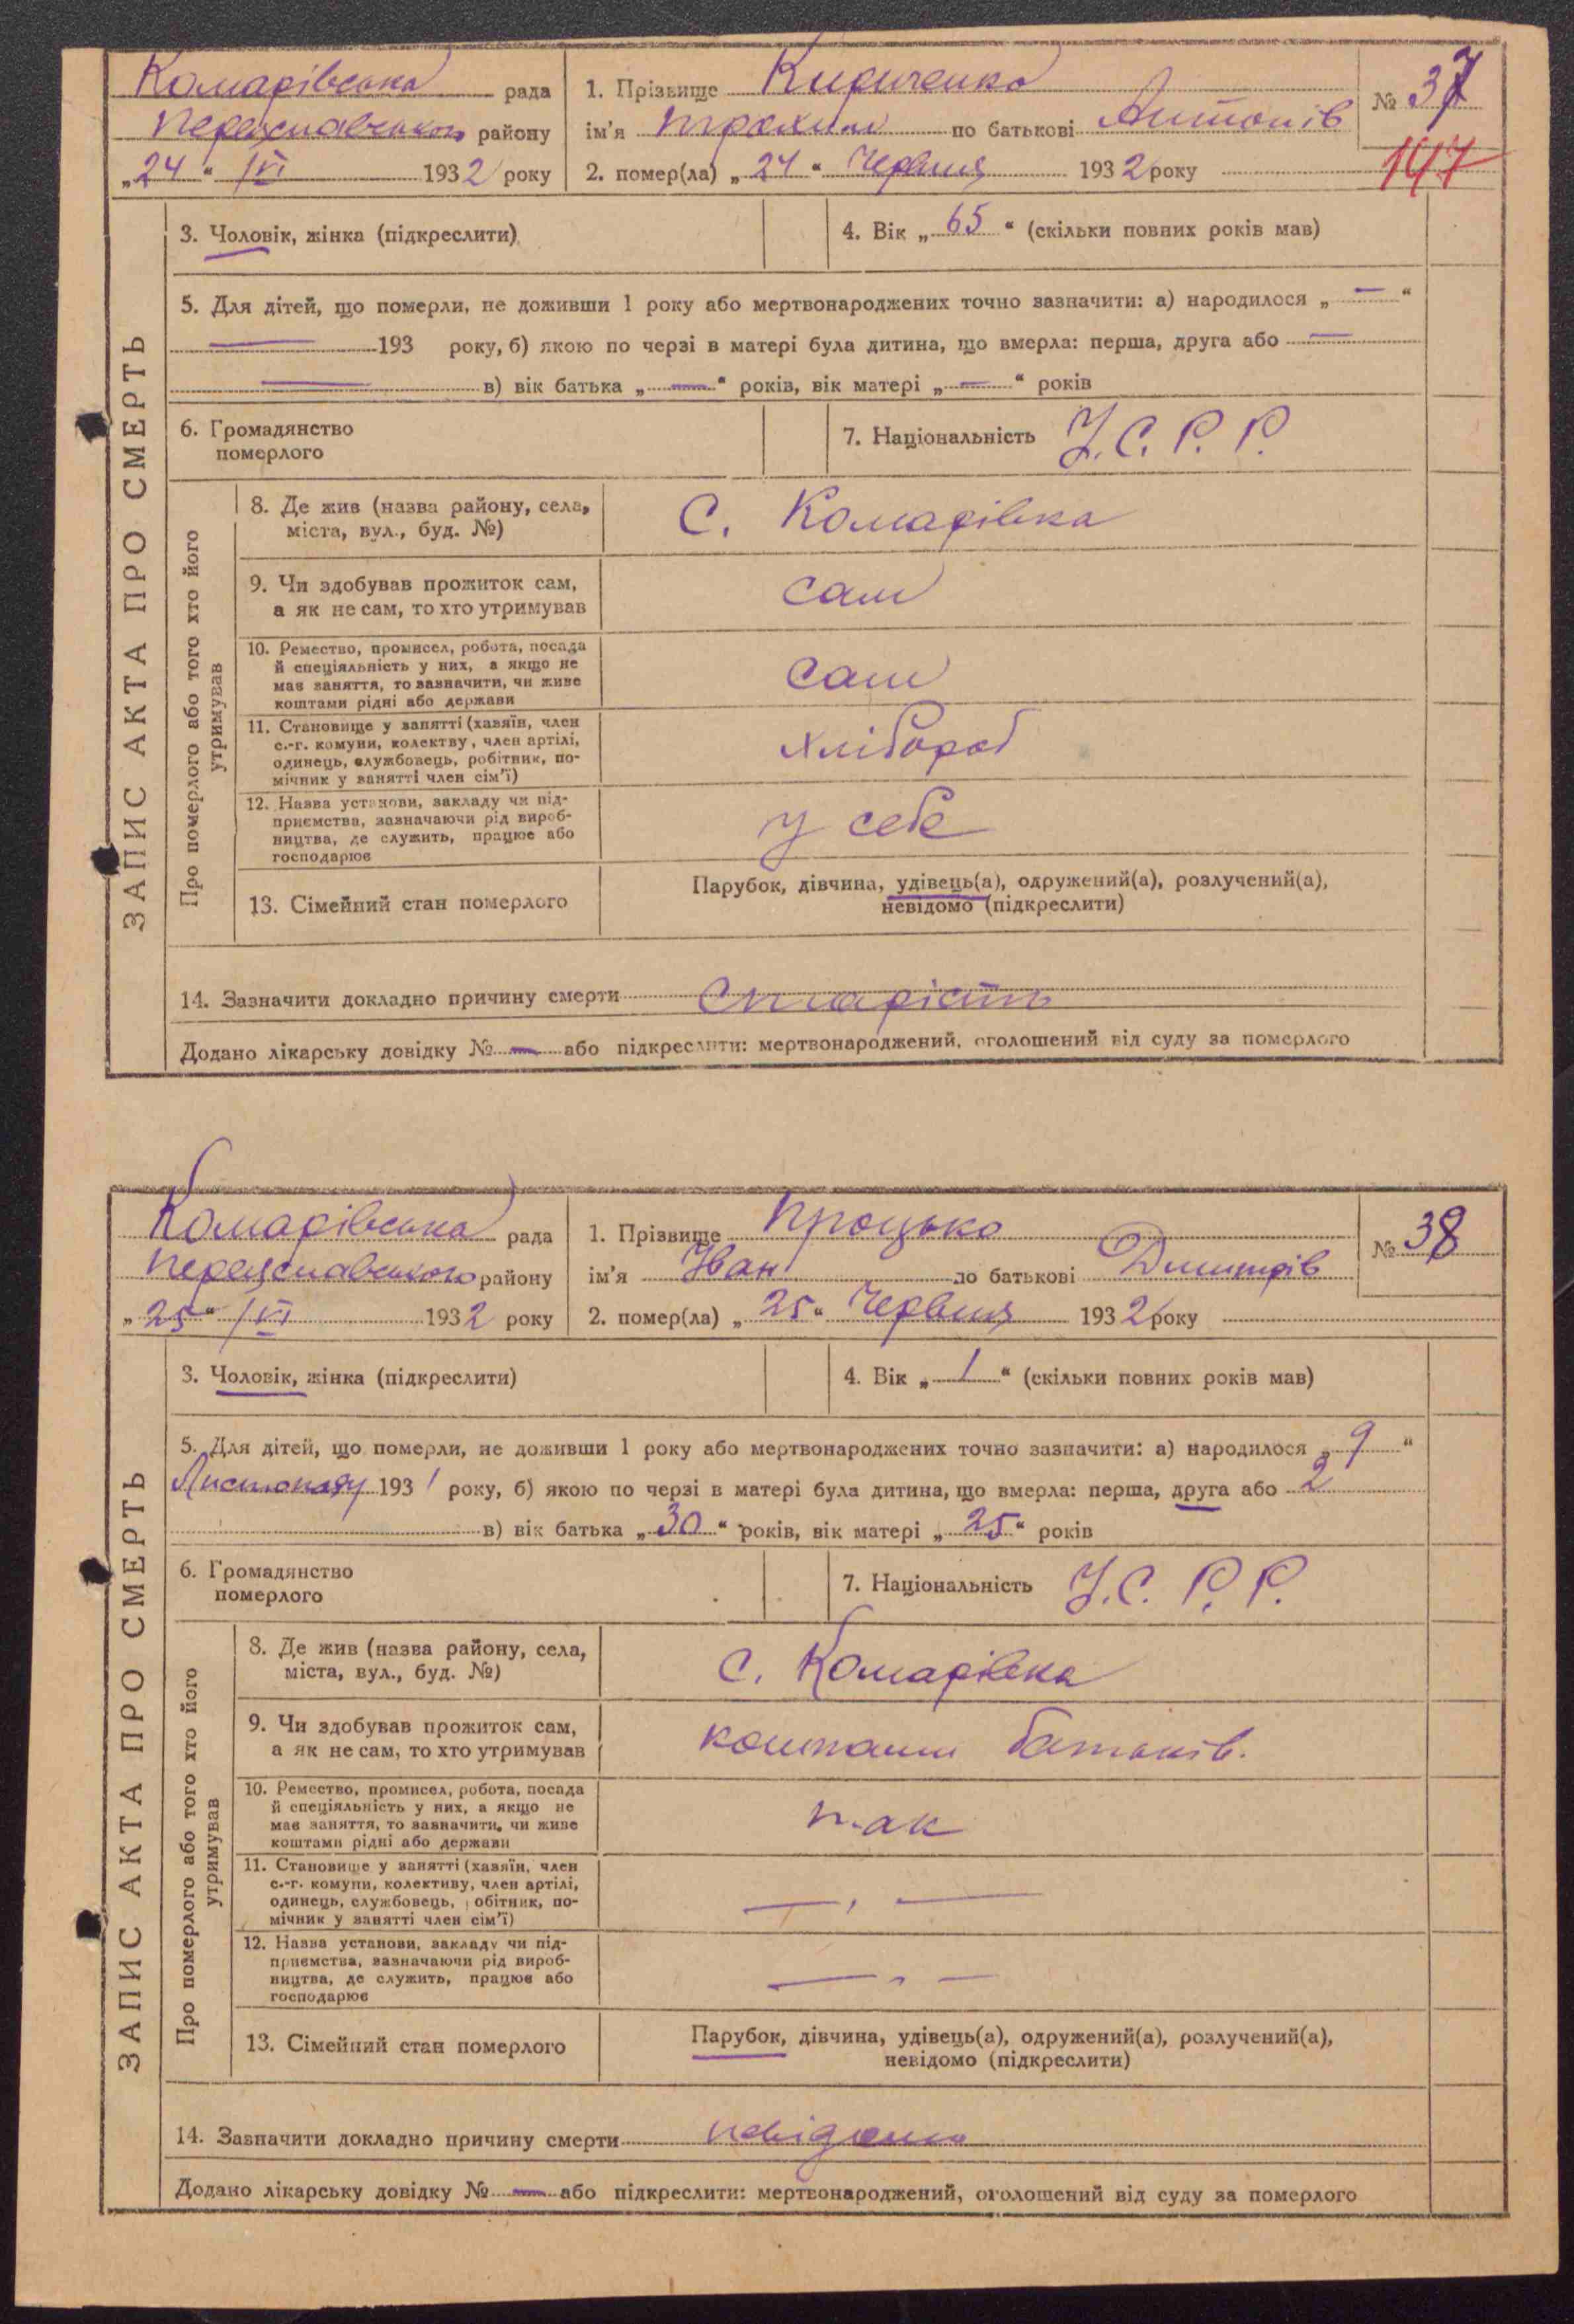 Комарівська рада
Переяславського району
„24“ /VI 1932 року
1. Прізвище Кириченко
ім'я Трохим по батькові Антонів
2. помер(ла) „24“ Червня 1932 року
№ 37
147
ЗАПИС АКТА ПРО СМЕРТЬ
3. Чоловік, жінка (підкреслити)
4. Вік „65“ (скільки повних років мав)
5. Для дітей, що померли, не доживши 1 року або мертвонароджених точно зазначити: а) народилося „—“
— 193 року, б) якою по черзі в матері була дитина, що вмерла: перша, друга або —
— в) вік батька „—“ років, вік матері „—“ років
6. Громадянство
померлого
7. Національність У.С.Р.Р.
Про померлого або того хто його
утримував
8. Де жив (назва району, села,
міста, вул., буд. №)
с. Комарівка
9. Чи здобував прожиток сам,
а як не сам, то хто утримував
сам
10. Ремество, промисел, робота, посада
й спеціяльність у них, а якщо не
має заняття, то зазначити, чи живе
коштами рідні або держави
сам
11. Становище у занятті (хазяїн, член
с.-г. комуни, колективу, член артілі,
одинець, службовець, робітник, по-
мічник у занятті член сім'ї)
хлібороб
12. Назва установи, закладу чи під-
приємства, зазначаючи рід вироб-
ництва, де служить, працює або
господарює
у себе
13. Сімейний стан померлого
Парубок, дівчина, удівець(а), одружений(а), розлучений(а),
невідомо (підкреслити)
14. Зазначити докладно причину смерти старість
Додано лікарську довідку № — або підкреслити: мертвонароджений, оголошений від суду за померлого
Комарівська рада
Переяславського району
„25“ /VI 1932 року
1. Прізвище Процько
ім'я Іван по батькові Дмитрів
2. помер(ла) „25“ Червня 1932 року
№ 38
ЗАПИС АКТА ПРО СМЕРТЬ
3. Чоловік, жінка (підкреслити)
4. Вік „1“ (скільки повних років мав)
5. Для дітей, що померли, не доживши 1 року або мертвонароджених точно зазначити: а) народилося „9“
Листопаду 1931 року, б) якою по черзі в матері була дитина, що вмерла: перша, друга або 2
в) вік батька „30“ років, вік матері „25“ років
6. Громадянство
померлого
7. Національність У.С.Р.Р.
Про померлого або того хто його
утримував
8. Де жив (назва району, села,
міста, вул., буд. №)
с. Комарівка
9. Чи здобував прожиток сам,
а як не сам, то хто утримував
коштами батьків.
10. Ремество, промисел, робота, посада
й спеціяльність у них, а якщо не
має заняття, то зазначити, чи живе
коштами рідні або держави
так
11. Становище у занятті (хазяїн, член
с.-г. комуни, колективу, член артілі,
одинець, службовець, робітник, по-
мічник у занятті член сім'ї)
— , —
12. Назва установи, закладу чи під-
приємства, зазначаючи рід вироб-
ництва, де служить, працює або
господарює
— „ —
13. Сімейний стан померлого
Парубок, дівчина, удівець(а), одружений(а), розлучений(а),
невідомо (підкреслити)
14. Зазначити докладно причину смерти невідомо
Додано лікарську довідку № — або підкреслити: мертвонароджений, оголошений від суду за померлого